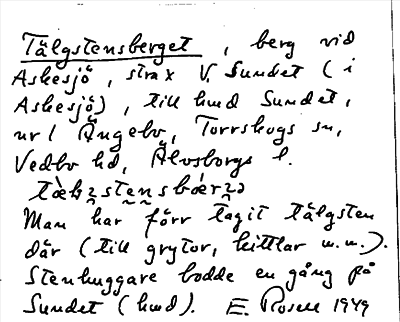 Tälgstensberget, berg vid
Askesjö, strax V. Sundet (i
Askesjö), till hmd Sundet,
nr 1 Ängebo, Torrskogs sn,
Vedbo hd, Älvsborgs l.
Man har förr tagit tälgsten
där (till grytor, kittlar m.m.).
Stenhuggare bodde en gång på
Sundet (hmd). E. Rosell 1949